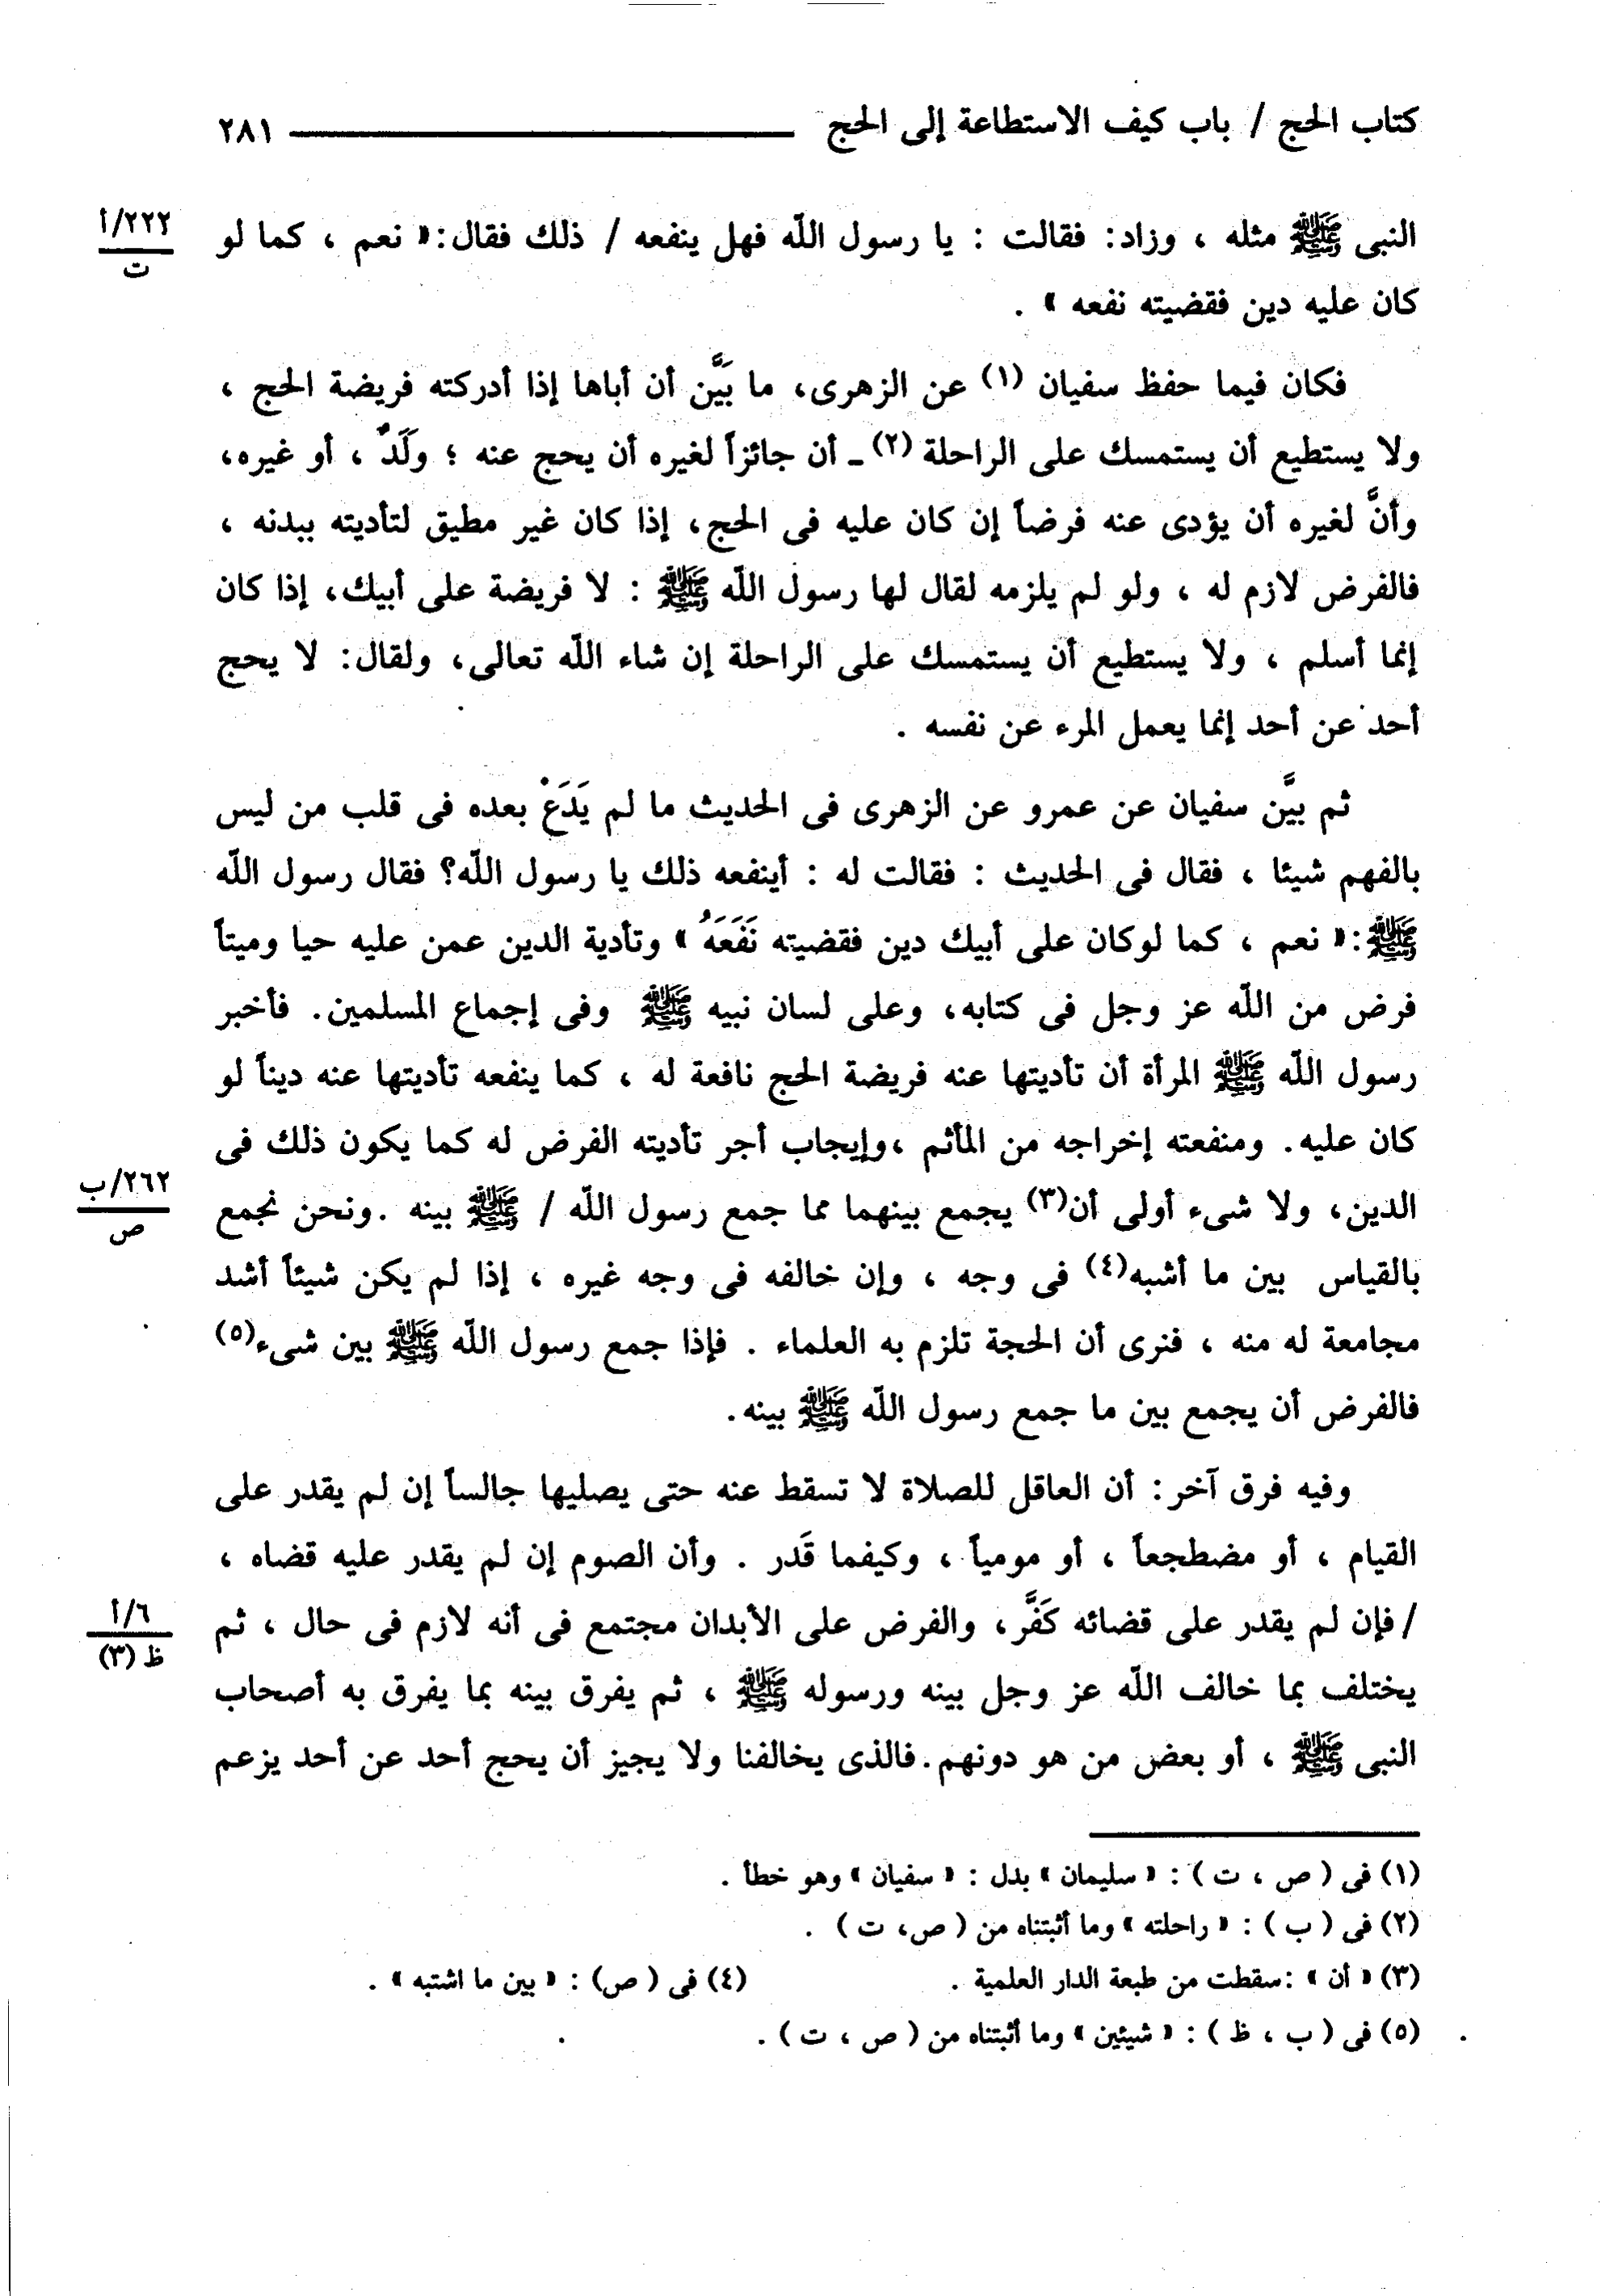 كتاب الحج / باب كيف الاستطاعة إلى الحج ٢٨١
النبى ﷺ مثله ، وزاد: فقالت : يا رسول الله فهل ينفعه / ذلك فقال:« نعم ، كما لو
٢٢٢/أ
ت
كان عليه دين فقضيته نفعه » .
فكان فيما حفظ سفيان (١) عن الزهرى، ما بَيَّن أن أباها إذا أدركته فريضة الحج ،
ولا يستطيع أن يستمسك على الراحلة (٢) ـ أن جائزاً لغيره أن يحج عنه ؛ ولَدٌ ، أو غيره،
وأنَّ لغيره أن يؤدى عنه فرضاً إن كان عليه فى الحج، إذا كان غير مطيق لتأديته ببدنه ،
فالفرض لازم له ، ولو لم يلزمه لقال لها رسول الله ﷺ : لا فريضة على أبيك، إذا كان
إنما أسلم ، ولا يستطيع أن يستمسك على الراحلة إن شاء الله تعالى، ولقال: لا يحج
أحد عن أحد إنما يعمل المرء عن نفسه .
ثم بيَّن سفيان عن عمرو عن الزهرى فى الحديث ما لم يَدَعْ بعده فى قلب من ليس
بالفهم شيئا ، فقال فى الحديث : فقالت له : أينفعه ذلك يا رسول الله؟ فقال رسول الله
ﷺ:« نعم ، كما لوكان على أبيك دين فقضيته نَفَعَهُ » وتأدية الدين عمن عليه حيا وميتاً
فرض من الله عز وجل فى كتابه، وعلى لسان نبيه ﷺ وفى إجماع المسلمين. فأخبر
رسول الله ﷺ المرأة أن تأديتها عنه فريضة الحج نافعة له ، كما ينفعه تأديتها عنه ديناً لو
كان عليه. ومنفعته إخراجه من المأثم ،وإيجاب أجر تأديته الفرض له كما يكون ذلك فى
الدين، ولا شىء أولى أن(٣) يجمع بينهما مما جمع رسول الله / ﷺ بينه .ونحن نجمع
٢٦٢/ب
ص
بالقياس بين ما أشبه(٤) فى وجه ، وإن خالفه فى وجه غيره ، إذا لم يكن شيئاً أشد
مجامعة له منه ، فنرى أن الحجة تلزم به العلماء . فإذا جمع رسول الله ﷺ بين شىء(٥)
فالفرض أن يجمع بين ما جمع رسول الله ﷺ بينه.
وفيه فرق آخر: أن العاقل للصلاة لا تسقط عنه حتى يصليها جالساً إن لم يقدر على
القيام ، أو مضطجعاً ، أو مومياً ، وكيفما قَدر . وأن الصوم إن لم يقدر عليه قضاه ،
/ فإن لم يقدر على قضائه كَفَّر، والفرض على الأبدان مجتمع فى أنه لازم فى حال ، ثم
٦/أ
ظ (٣)
يختلف بما خالف الله عز وجل بينه ورسوله ﷺ ، ثم يفرق بينه بما يفرق به أصحاب
النبى ﷺ ، أو بعض من هو دونهم. فالذى يخالفنا ولا يجيز أن يحج أحد عن أحد يزعم
(١) فى ( ص ، ت ) : « سليمان » بدل : « سفيان » وهو خطأ .
(٢) فى ( ب ) : « راحلته » وما أثبتناه من ( ص، ت ) .
(٣) « أن » :سقطت من طبعة الدار العلمية . (٤) فى ( ص) : « بين ما اشتبه » .
(٥) فى ( ب ، ظ ) : « شيئين » وما أثبتناه من ( ص ، ت ) .